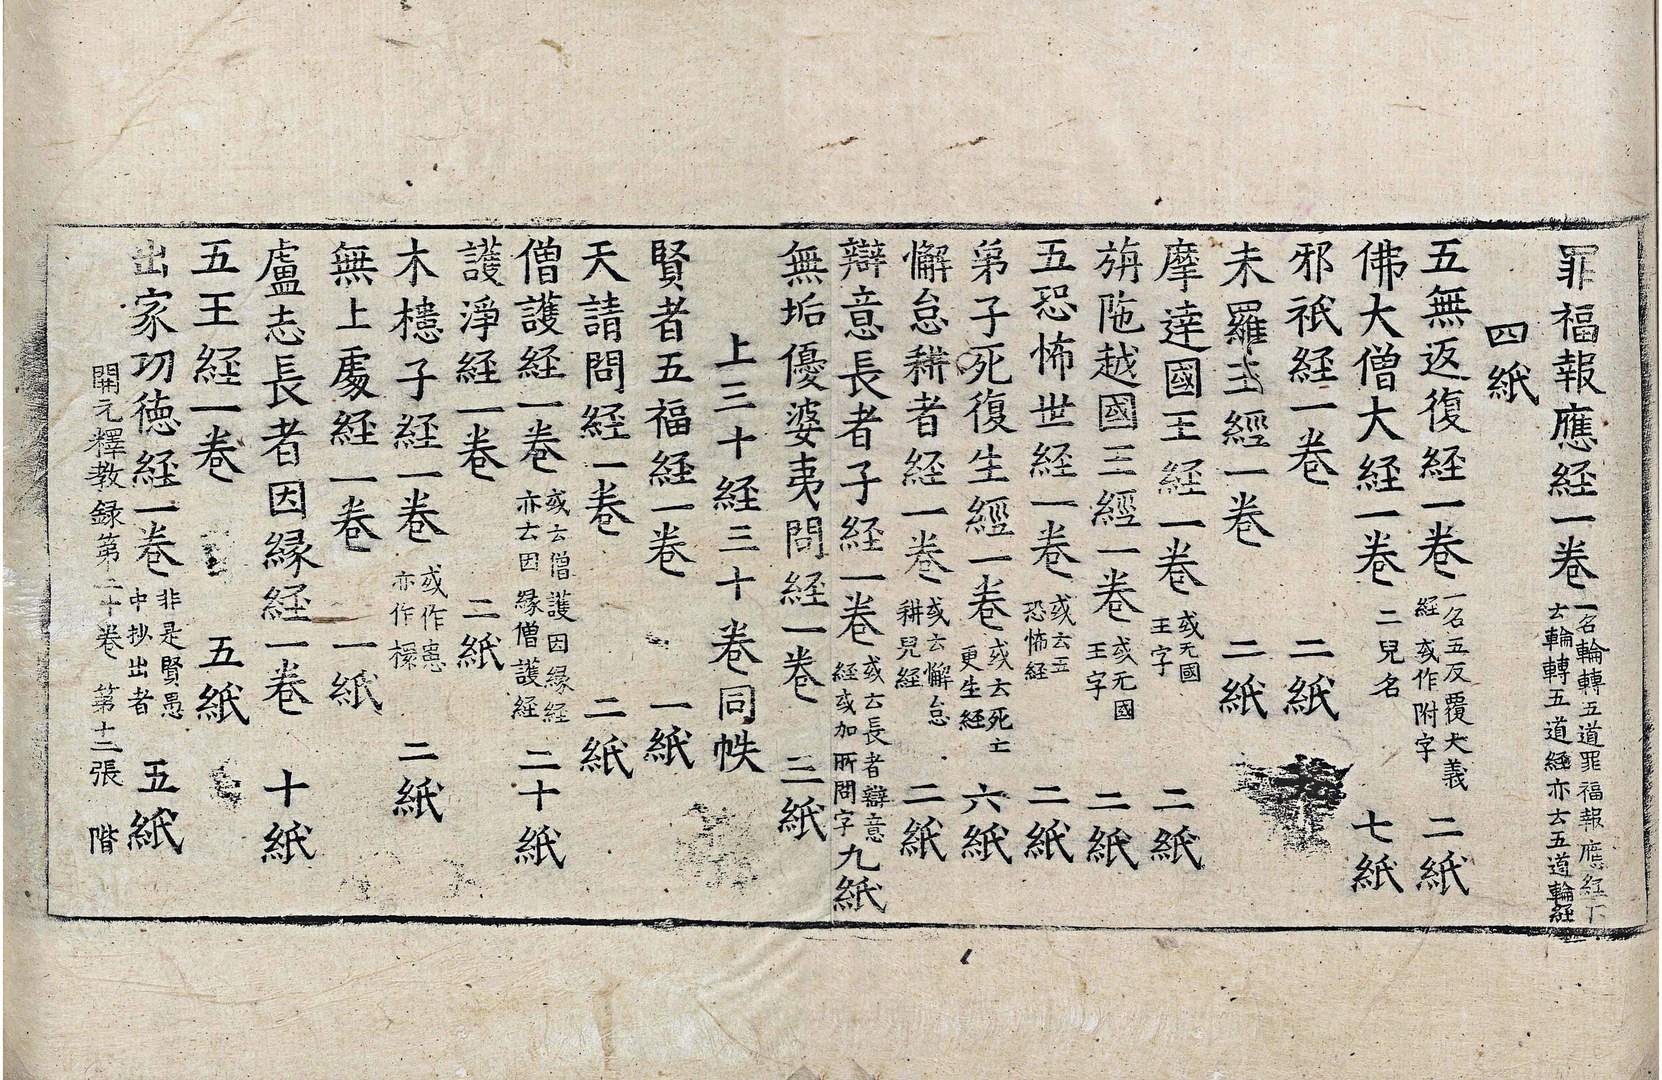 罪福報應経一卷 一名輪轉五道罪福報應経下
云輪轉五道経亦云五道輪経
四紙
五無返復経一卷 一名五反覆大義
経或作附字 二紙
佛大僧大経一卷 二兒名 七紙
邪祇経一卷 二紙
末羅王經一卷 二紙
摩達國王経一卷 或无國
王字 二紙
旃陁越國王經一卷 或无國
王字 二紙
五恐怖世経一卷 或云五
恐怖経 二紙
弟子死復生經一卷 或云死亡
更生経 六紙
懈怠耕者經一卷 或云懈怠
耕兒経 二紙
辯意長者子経一卷 或云長者辯意
経或加所問字 九紙
無垢優婆夷問経一卷 三紙
上三十經三十卷同帙
賢者五福経一卷 一紙
天請問経一卷 二紙
僧護経一卷 或云僧護因縁経
亦云因縁僧護経 二十紙
護淨経一卷 二紙
木槵子経一卷 或作患
亦作槵 二紙
無上處経一卷 一紙
盧志長者因縁経一卷 十紙
五王経一卷 五紙
出家功德経一卷 非是賢愚
中抄出者 五紙
開元釋教録第二十卷 第十二張 階